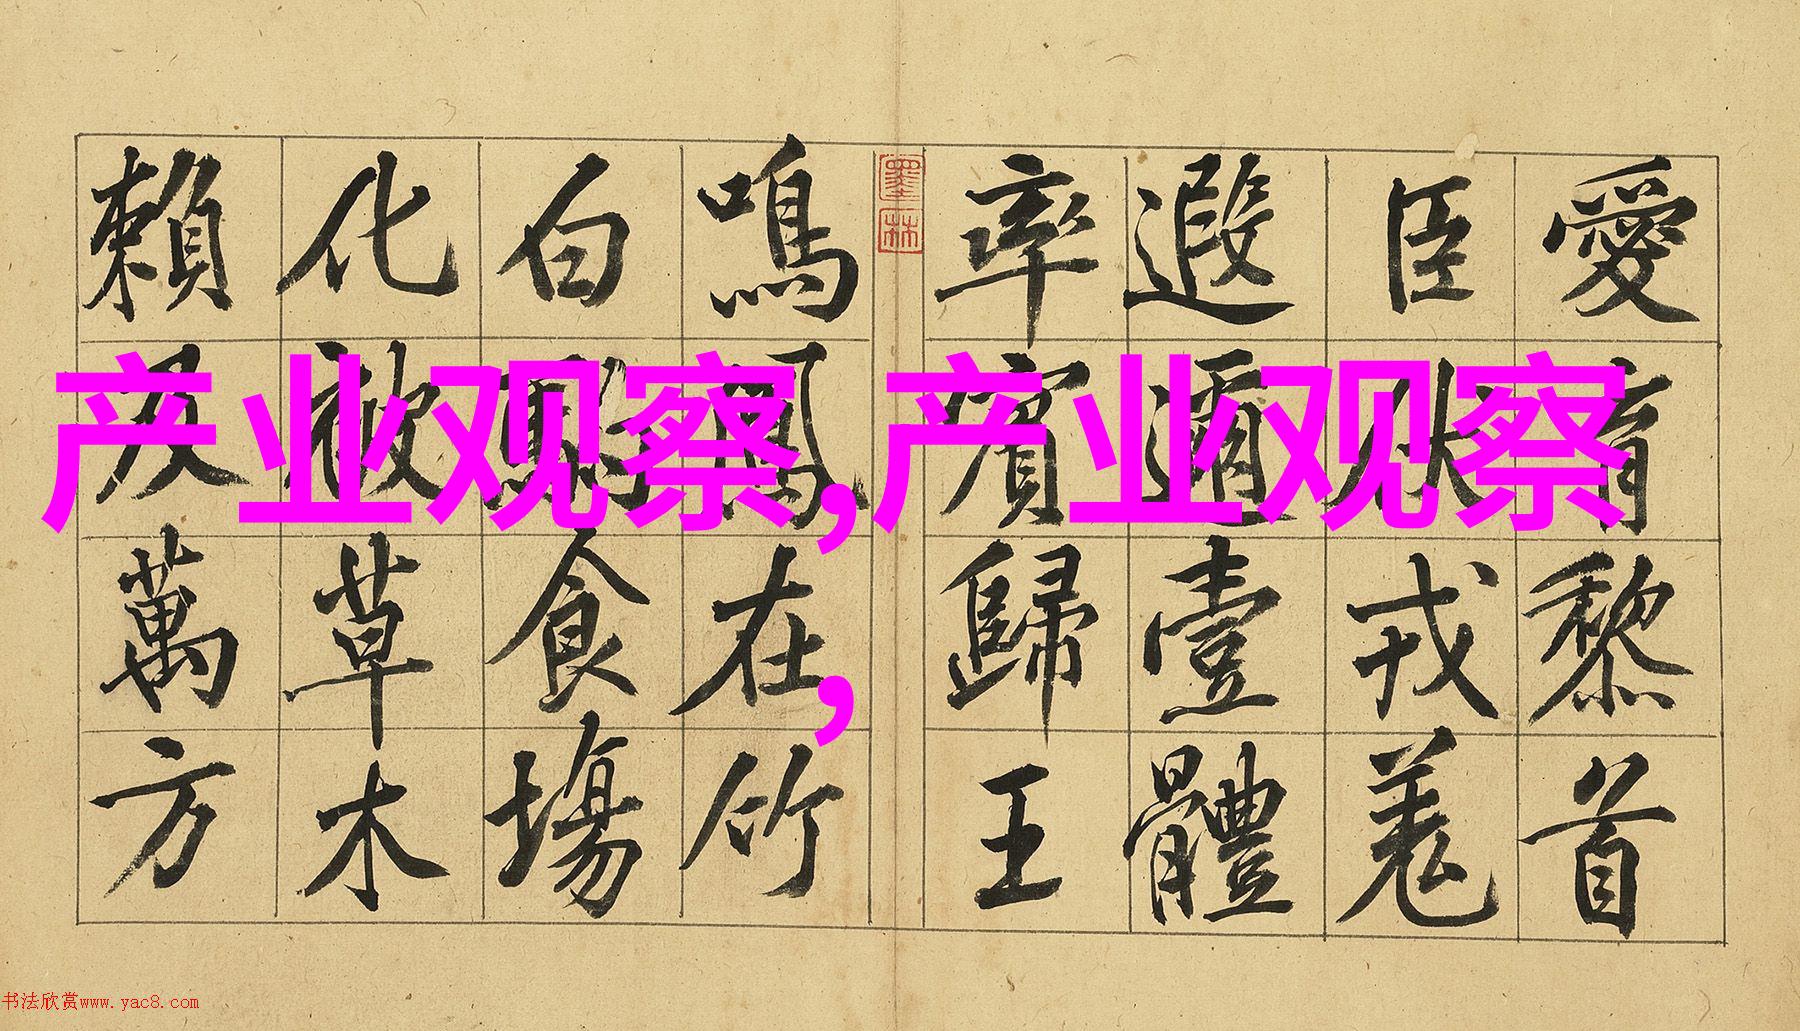 愛育黎首
臣伏戎羌
遐邇壹體
率賓歸王
墨林
鳴鳳在竹
白駒食場
化被草木
賴及萬方
产业观察,产业观察
,
书法欣赏www.yac8.com